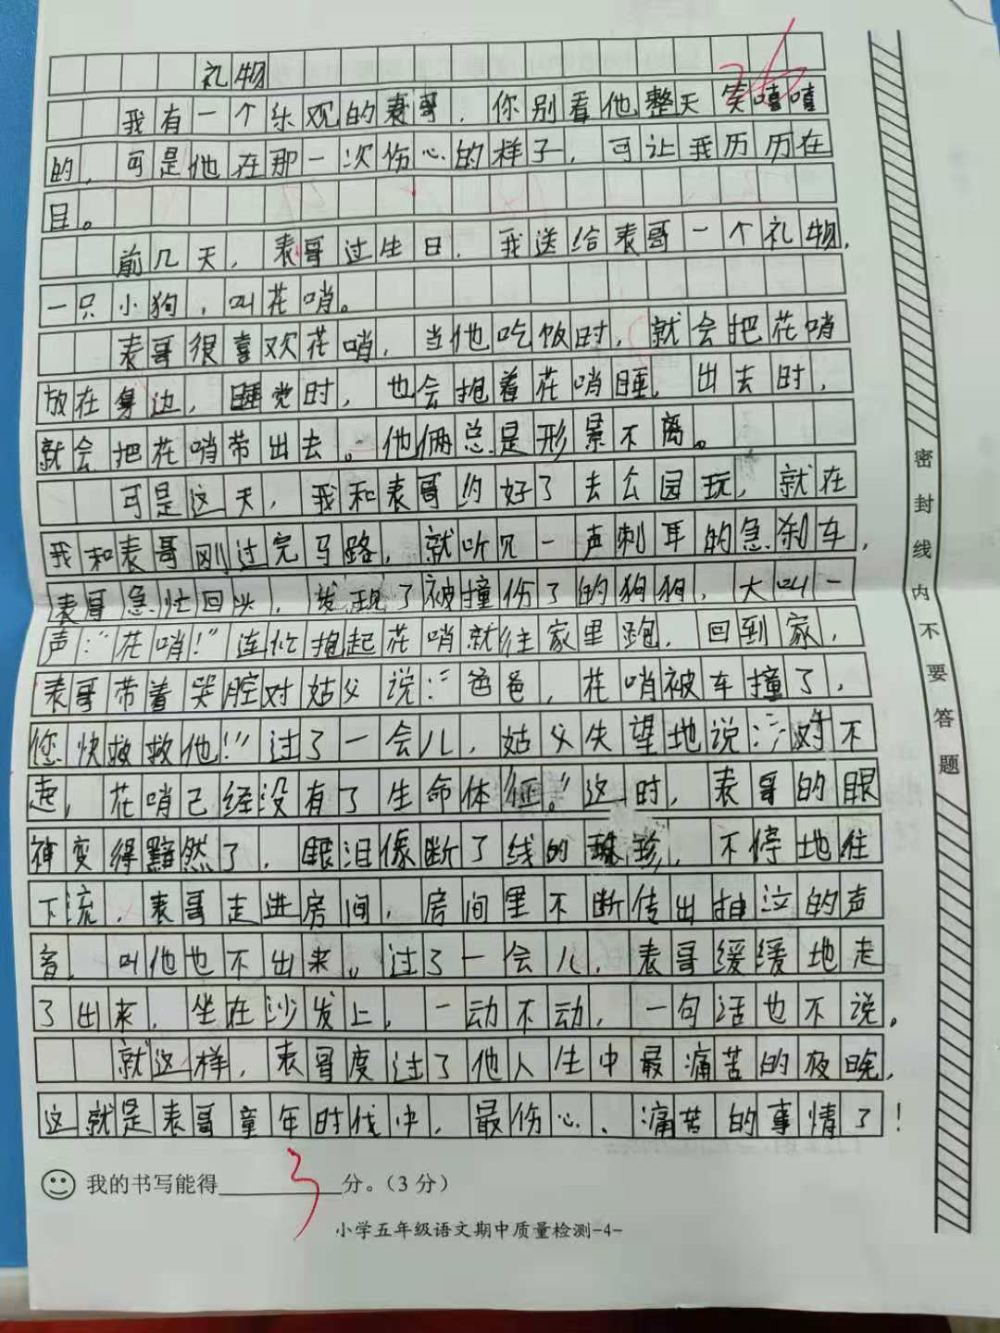 礼物
26
我有一个乐观的表哥,你别看他整天笑嘻嘻
的,可是他在那一次伤心的样子,可让我历历在
目。
前几天,表哥过生日,我送给表哥一个礼物,
一只小狗,叫花哨。
表哥很喜欢花哨,当他吃饭时,就会把花哨
放在身边,睡觉时,也会抱着花哨睡,出去时,
就会把花哨带出去。他俩总是形景不离。
可是这天,我和表哥约好了去公园玩,就在
我和表哥刚过完马路,就听见一声刺耳的急刹车,
表哥急忙回头,发现了被撞伤了的狗狗,大叫一
声:“花哨!”连忙抱起花哨就往家里跑,回到家,
表哥带着哭腔对姑父说:“爸爸,花哨被车撞了,
您快救救他!”过了一会儿,姑父失望地说:“对不
起,花哨已经没有了生命体征。”这时,表哥的眼
神变得黯然了,眼泪像断了线的珠,不停地往
下流,表哥走进房间,房间里不断传出抽泣的声
音,叫他也不出来。过了一会儿,表哥缓缓地走
了出来,坐在沙发上,一动不动,一句话也不说。
就这样,表哥度过了他人生中最痛苦的夜晚,
这就是表哥童年时代中,最伤心、痛苦的事情了!
我的书写能得3分。(3分)
小学五年级语文期中质量检测-4-
密封线内不要答题